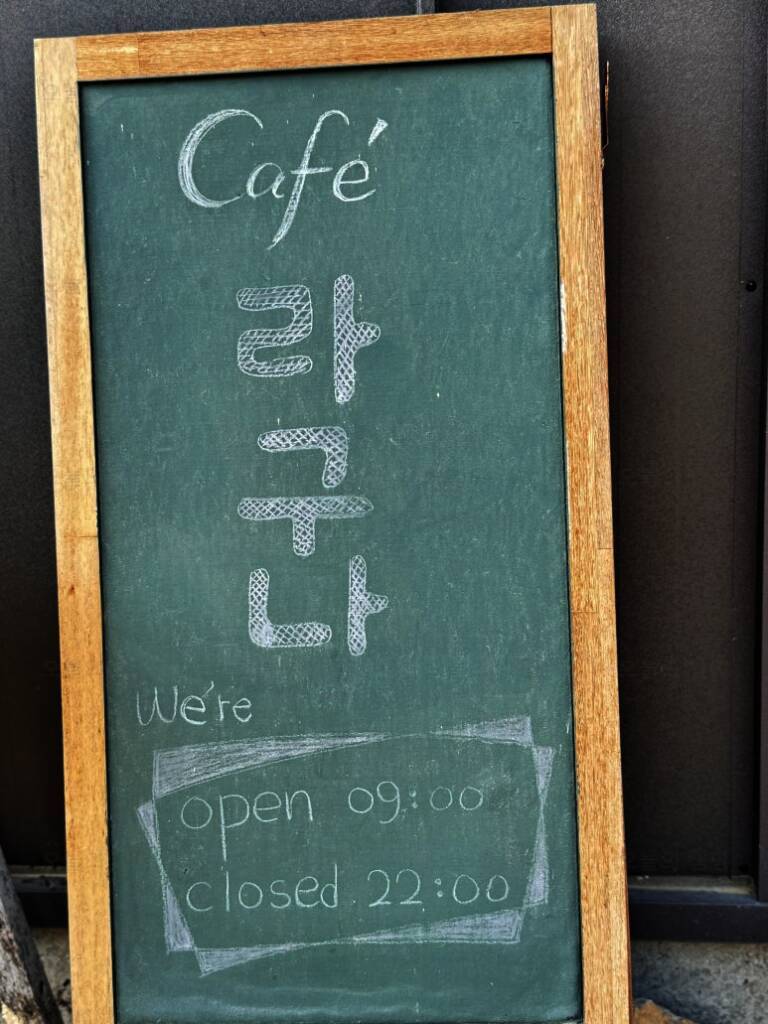 Café
라
구
나
We're
open 09:00
closed 22:00